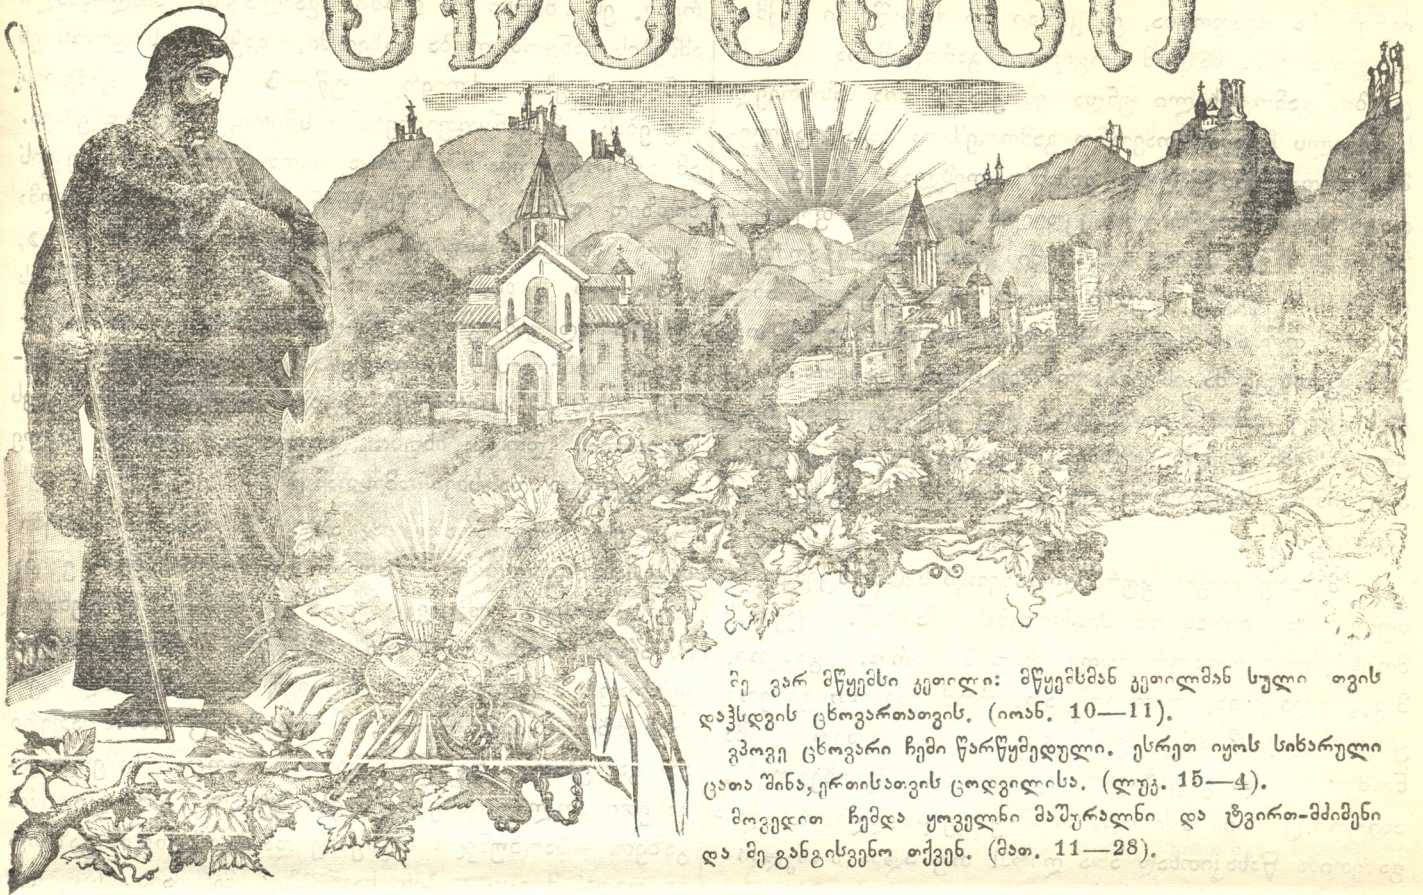 მე ვარ მწყემსი კეთილი: მწყემსმან კეთილმან სული თვის
დაჰსდვის ცხოვართათვის. (იოან. 10—11).
ვპოვე ცხოვარი ჩემი წარწყმედული. ესრეთ იყოს სიხარული
ცათა შინა, ერთისათვის ცოდვილისა. (ლუკ. 15—4).
მოვედით ჩემდა ყოველნი მაშურალნი და ტვირთ-მძიმენი
და მე განგისვენო თქვენ. (მათ. 11—28).